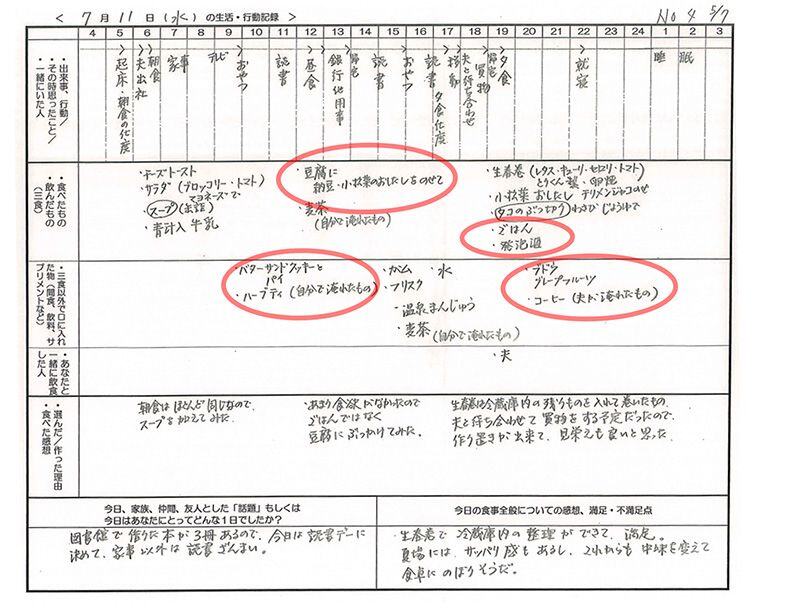 < 7月 11日 (水) の生活・行動記録 > No 4 5/7
4 5 6 7 8 9 10 11 12 13 14 15 16 17 18 19 20 21 22 23 24 1 2 3
・出来事、行動/
・その時思ったこと/
・一緒にいた人
起床・朝食の仕度
夫出社
朝食
家事
テレビ
おやつ
読書
昼食
銀行他用事
帰宅
読書
おやつ
読書
夕食仕度
移動
夫と待ち合わせ
買物
帰宅
夕食
就寝
睡眠
・食べたもの
・飲んだもの
(三食)
・チーズトースト
・サラダ(ブロッコリー・トマト)
マヨネーズで
・スープ(缶詰)
・青汁入牛乳
・豆腐に
納豆・小松菜のおしたしをのせて
・麦茶
(自分で淹れたもの)
・生春巻(レタス・キューリ・セロリ・トマト
・小松菜おしたし チリメンジャコのせ
・タコのぶっ切り わさびじょうゆで
・ごはん
・発泡酒
・三食以外で口に入れ
た物(間食、飲料、サ
プリメントなど)
・バターサンドクッキーと
パイ
・ハーブティ(自分で淹れたもの)
・ガム ・水
・フリスク
・温泉まんじゅう
・麦茶(自分で淹れたもの)
・ブドウ
グレープフルーツ
・コーヒー(夫が淹れたもの)
・あなたと
一緒に飲食
した人
・夫
・選んだ/作った理由
・食べた感想
朝食はほとんど同じなので、
スープを加えてみた。
・あまり食欲がなかったので
ごはんではなく
豆腐にぶっかけてみた。
生春巻は冷蔵庫内の残りものを入れて巻いたもの。
夫と待ち合わせて買物をする予定だったので、
作り置きが出来て、見栄えも良いと思った。
今日、家族、仲間、友人とした「話題」もしくは
今日はあなたにとってどんな1日でしたか?
図書館で借りた本が3冊あるので、今日は読書デーに
決めて、家事以外は読書ざんまい。
今日の食事全般についての感想、満足・不満足点
・生春巻で冷蔵庫内の整理ができて、満足。
夏場には、サッパリ感もあるし、これからも中味を変えて
食卓にのぼりそうだ。